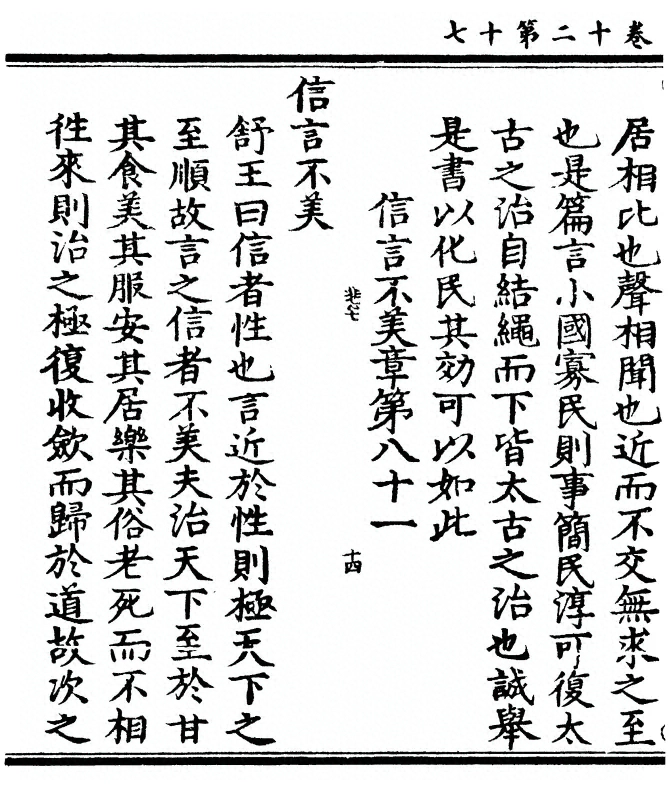 卷十二第十七
居相比也聲相聞也近而不交無求之至
也是篇言小國寡民則事簡民淳可復太
古之治自結繩而下皆太古之治也誠舉
是書以化民其効可以如此
信言不美章第八十一
十四
信言不美
舒王曰信者性也言近於性則極天下之
至順故言之信者不美夫治天下至於甘
其食美其服安其居樂其俗老死而不相
徃來則治之極復收斂而歸於道故次之